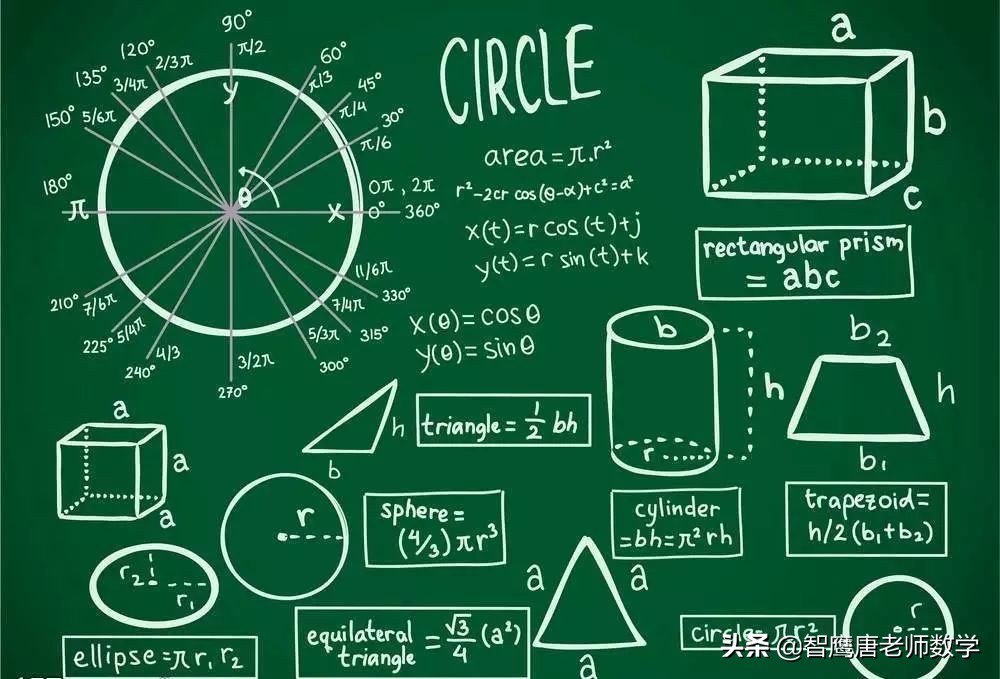 90°
120°
2/3π
π/2
60°
135°
3/4π
π/3
45°
150°
5/6π
π/4
30°
π/6
y
θ
180°
π
x
0π , 2π
0°
360°
210°
7/6π
11/6π
330°
225°
5/4π
7/4π
315°
240°
4/3
3/2π
5/3π
300°
270°
CIRCLE
area=π.r²
r²-2cr cos(θ-α)+c²=a²
x(t)=r cos(t)+j
y(t)=r sin(t)+k
X(θ)=cosθ
y(θ)=sinθ
a
b
c
rectangular prism
= abc
b
h
r
cylinder
=bh=π²rh
b₂
h
b₁
trapezoid=
h/2(b₁+b₂)
h
b
triangle=½ bh
a
a
a
r
sphere=
(4/3)πr³
r₂
r₁
ellipse=πr₁r₂
equilateral
triangle
=√3/4(a²)
a
a
a
circle=πr²
r
头条@智鹰唐老师数学